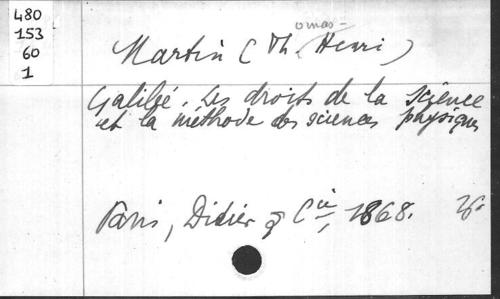 480
153
60
1
omas-
Martin (Th. Henri)
Galilée. Les droits de la science
et la méthode des sciences physiques
Paris, Didier & Cie, 1868.